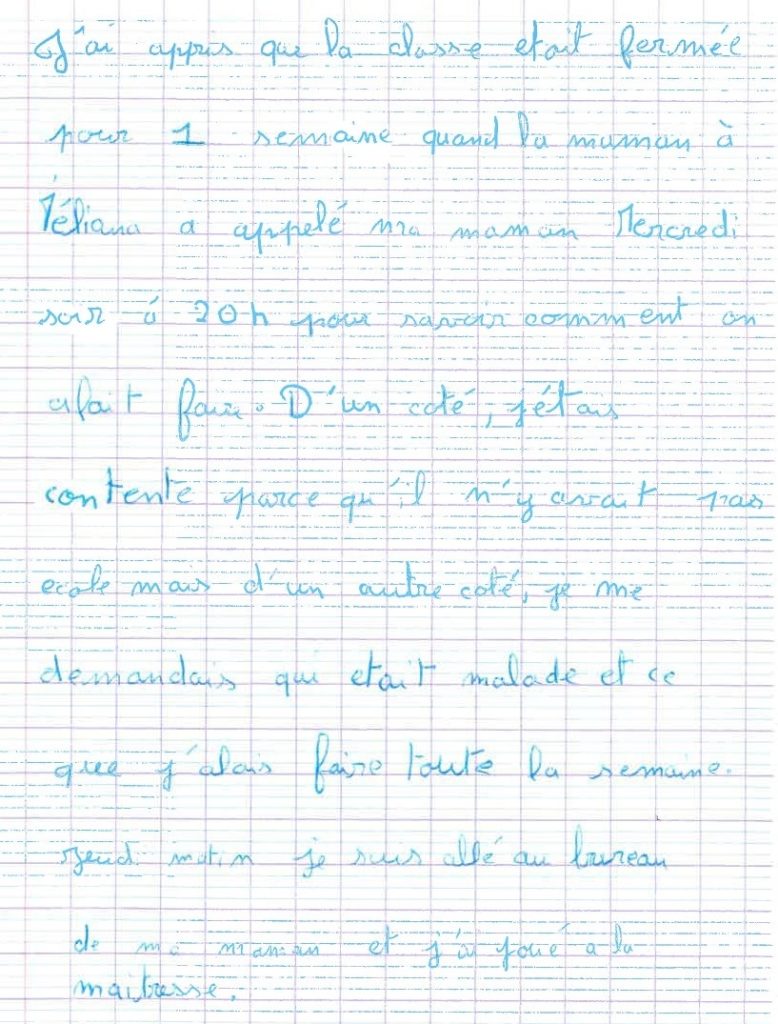 J'ai appris que la classe etait fermée
pour 1 semaine quand la maman à
Téliana a appelé ma maman Mercredi
soir à 20h pour savoir comment on
alait faire. D'un coté, j'étais
contente parce qu'il n'y avait pas
ecole mais d'un autre coté, je me
demandais qui etait malade et ce
que j'alais faire toute la semaine.
Jeudi matin je suis allé au bureau
de ma maman et j'ai joué a la
maitresse.